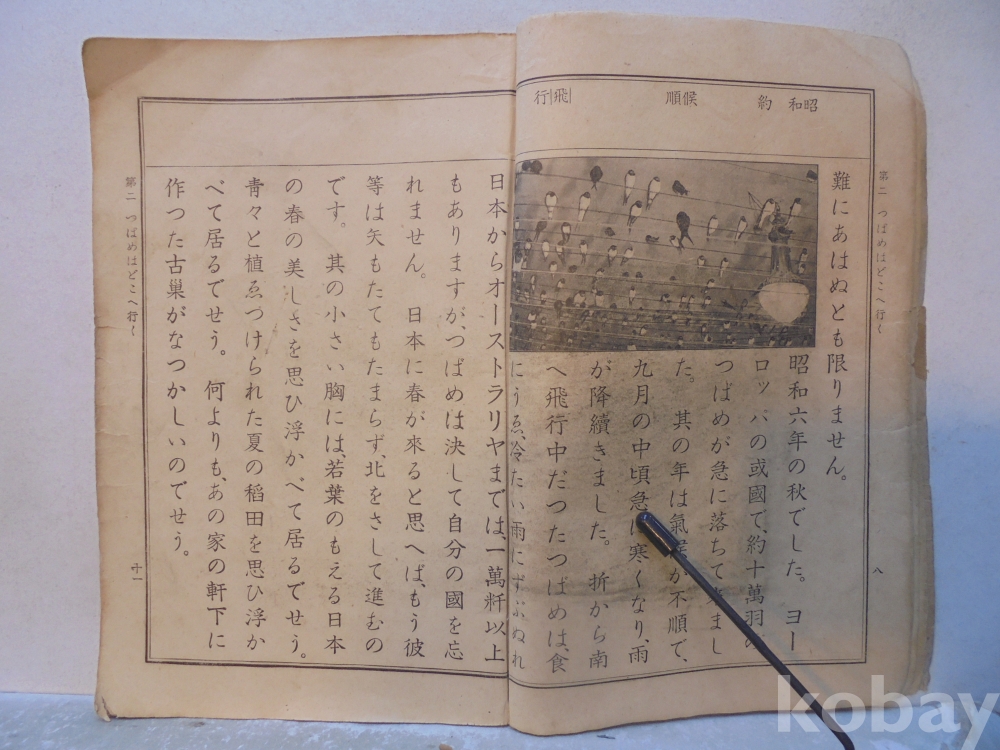 第二 つばめはどこへ行く
八
昭和
約
候順
飛行
難にあはぬとも限りません。
昭和六年の秋でした。ヨー
ロッパの或國で、約十萬羽の
つばめが急に落ちて來まし
た。其の年は氣候が不順で、
九月の中頃急に寒くなり、雨
が降續きました。折から南
へ飛行中だつたつばめは、食
にうゑ、冷たい雨にずぶぬれ
日本からオーストラリヤまでは、一萬粁以上
もありますが、つばめは決して自分の國を忘
れません。日本に春が來ると思へば、もう彼
等は矢もたてもたまらず、北をさして進むの
です。其の小さい胸には、若葉のもえる日本
の春の美しさを思ひ浮かべて居るでせう。
靑々と植ゑつけられた夏の稻田を思ひ浮か
べて居るでせう。何よりも、あの家の軒下に
作つた古巢がなつかしいのでせう。
第二 つばめはどこへ行く
十一
kobay